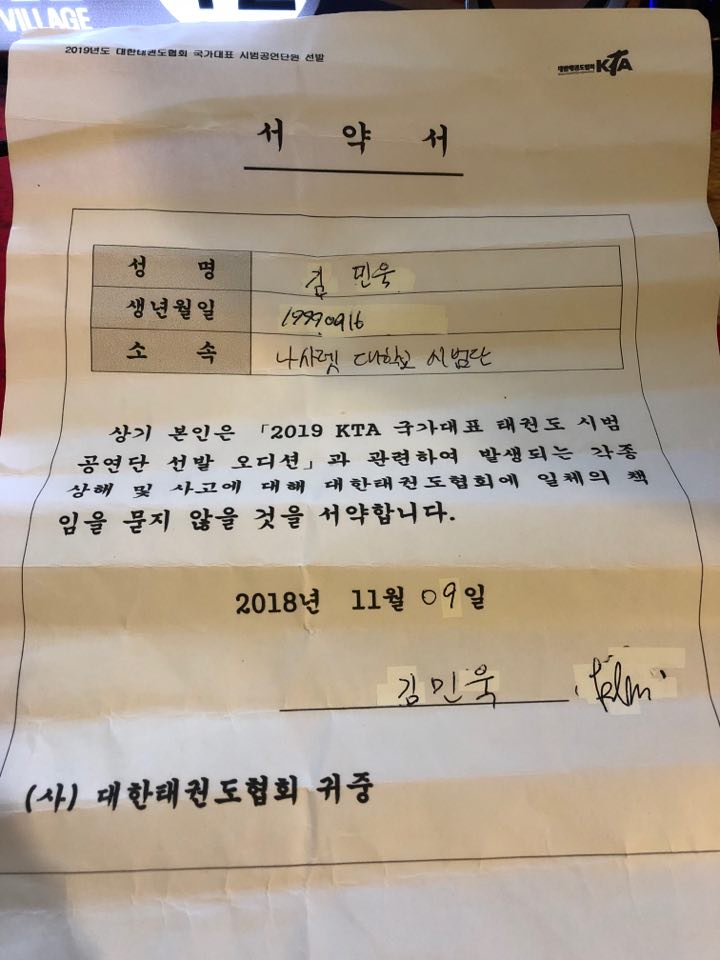 VILLAGE
2019년도 대한태권도협회 국가대표 시범공연단원 선발
대한태권도협회 KTA
서 약 서
성 명 김 민욱
생년월일 19990916
소 속 나사렛 대학교 시범단
상기 본인은 「2019 KTA 국가대표 태권도 시범
공연단 선발 오디션」과 관련하여 발생되는 각종
상해 및 사고에 대해 대한태권도협회에 일체의 책
임을 묻지 않을 것을 서약합니다.
2018년 11월 09일
김민욱
(사) 대한태권도협회 귀중